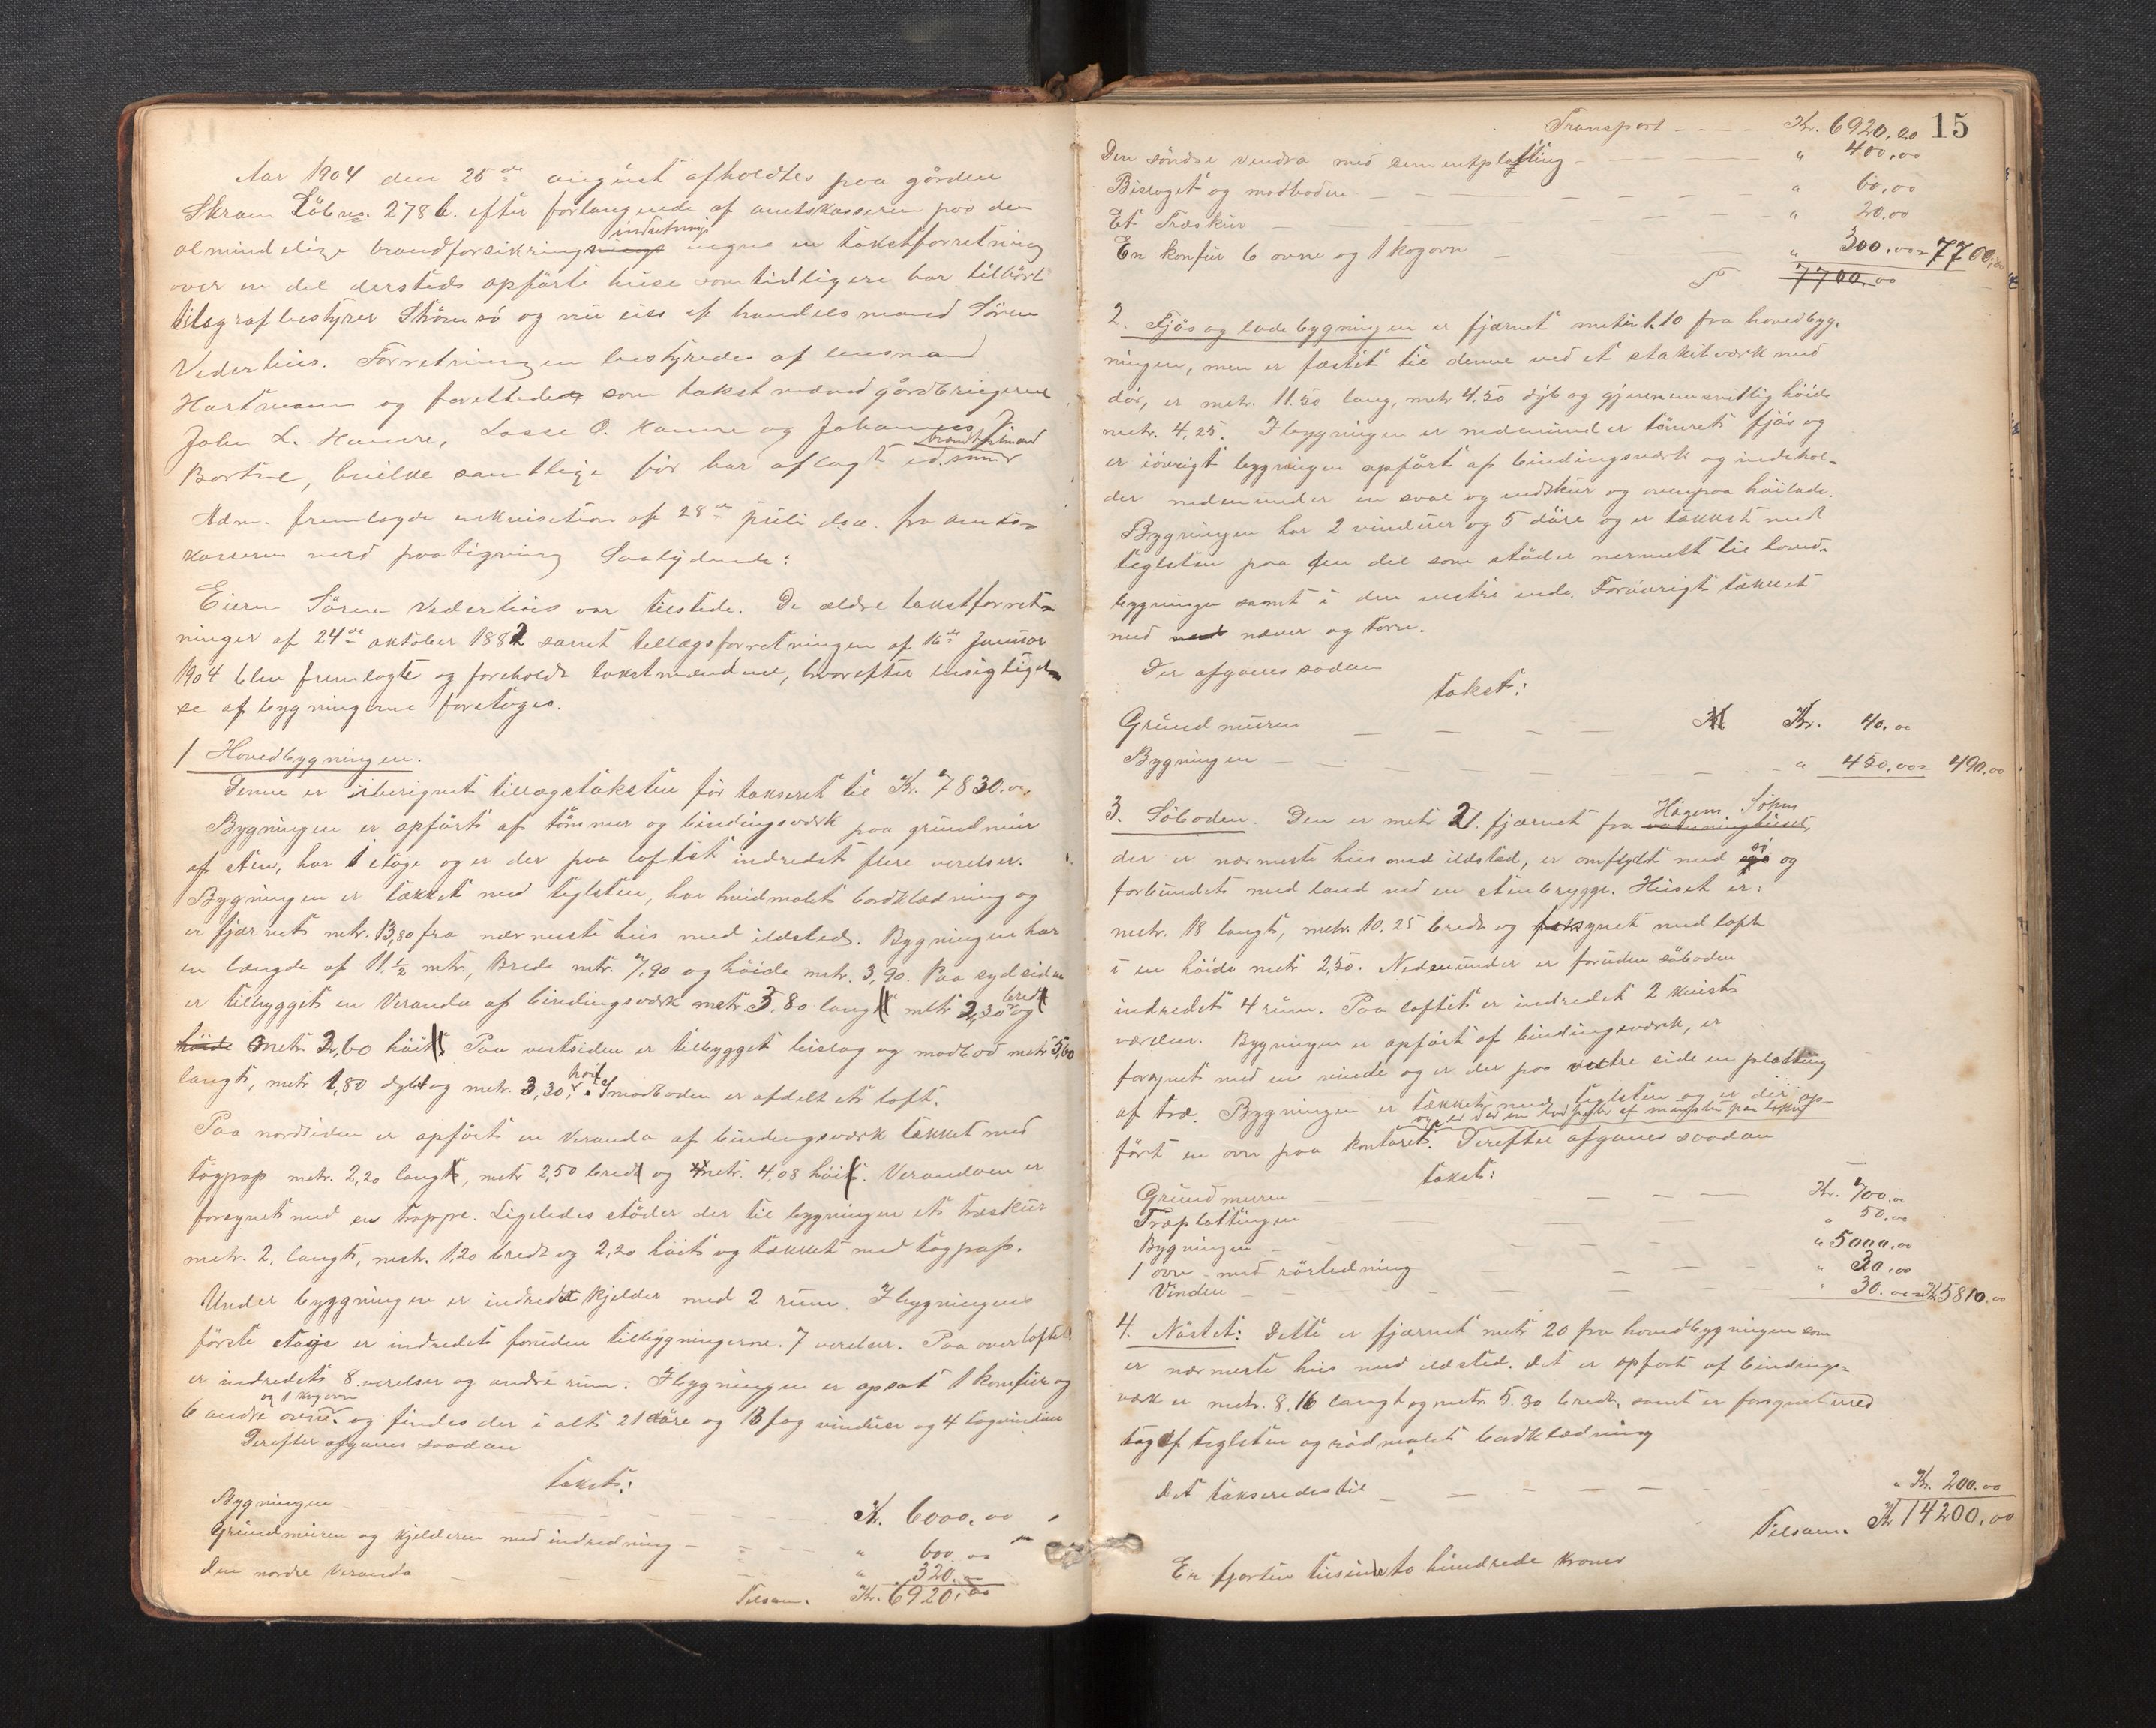 Aar 1904 den 25de august afholdtes paa gården
Skram Löbno. 278 b. efter forlangende af amtskasseren paa den
almindelige brandforsikrings indretnings vegne en takstforretning
over en del dersteds opförte huse som tidligere har tilhört
telegrafbestyrer Strömsö og nu eies af handelsmand Sören
Vederhus. Forretningen bestyredes af lensmand
Hartmann og forettedes som takstmænd gårdbrugerne
John L. Hamre, Lasse O. Hamre og Johannes J.
Bortne, hvilke samtlige för har aflagt ed som brandskjönsmænd
Adm. fremlagde rekvisition af 28de juli d.a. fra amts-
kasseren med paategning saalydende:
Eieren Sören Vederhus var tilstede. De ældre takstforret-
ninger af 24de oktober 1882 samt tillægsforretningen af 16de Januar
1904 blev fremlagte og foreholdt takstmændene, hvorefter besigtigel-
se af bygningerne foretoges.
1 Hovedbygningen.
Denne er iberegnet tillægstaksten för takseret til Kr. 7830.00
Bygningen er opfört af tömmer og bindingsværk paa grundmur
af sten, har 1 etage og er der paa loftet indredet flere verelser.
Bygningen er tækket med teglsten, har hvidmalet bordklædning og
er fjærnet mtr. 13,80 fra nærmeste hus med ildsted. Bygningen har
en længde af 11.½ mtr., Brede mtr. 7,90 og höide mtr. 3,90. Paa sydsiden
er tilbygget en Veranda af bindingsværk metr. 3.80 lang metr 2,30 bred og
höide metr 2,60 höi. Paa vestsiden er tilbygget bislag og madbod metr 5,60
langt, metr 1,80 dybt og metr. 3,30 höit. I madboden er afdelt et loft.
Paa nordsiden er opfört en Veranda af bindingsværk tækket med
tagpap metr. 2,20 lang, metr 2,50 bred og metr. 4,08 höi. Verandaen er
forsynet med en trappe. Ligeledes stöder der til bygningen et træskur
metr. 2, langt, metr. 1,20 bredt og 2,20 höit og tækket med tagpap.
Under bygningen er indredet kjelder med 2 rum. I bygningens
förste etage er indredet foruden tilbygningerne 7 verelser. Paa overloftet
er indredet 8 verelser og andre rum. I bygningen er opsat 1 komfur og
6 andre ovne og 1 kogovn og findes der i alt 21 döre og 13 fag vinduer og 4 tagvinduer
Derefter afgaves saadan
takst:
Bygningen Kr. 6000.00
Grundmuren og kjelderen med indredning " 600.00
Den nordre Veranda " 320.00
Tilsam. Kr. 6920.00
15
Transport Kr. 6920.00
Den söndre vendra med sementplatting " 400.00
Bislaget og madboden " 60.00
Et Træskur " 20.00
En konfur 6 ovne og 1 kogovn " 300.00 = 7700.00
7700.00
2. Fjös og ladebygningen er fjærnet meter 1.10 fra hovedbyg-
ningen, men er fæstet til denne ved et stakitværk med
dör, er metr. 11.50 lang, metr 4.50 dyb og gjennemsnitlig höide
metr. 4,25. I bygningen er nedenunder tömret fjös og
er iövrigt bygningen opfört af bindingsværk og indehol-
der nedenunder en sval og vedskur og ovenpaa hölade.
Bygningen har 2 vinduer og 5 döre og er tækket med
teglsten paa den del som stöder nermest til hoved-
bygningen samt i den vestre ende. Forövrigt tækket
med næver og torv.
Der afgaves sadan
takst:
Grundmuren Kr. 40.00
Bygningen " 450.00 = 490.00
3. Söboden. Den er metr 21. fjærnet fra Hågens Söhus
der er nærmeste hus med ildsted, er omflydt med sjö og
forbundet med land ved en stenbrygge. Huset er:
metr. 18 langt, metr. 10.25 bredt og forsynet med loft
i en höide metr 2,50. Nedenunder er foruden söboden
indredet 4 rum. Paa loftet er indredet 2 kvist-
værelser. Bygningen er opfört af bindingsværk, er
forsynet med en vinde og er der paa vestre side en platting
af træ. Bygningen er tækket med teglsten og er der op-
fört en ovn paa kontoret. Derefter afgaves saadan
takst:
Grundmuren Kr. 700.00
Træplattingen " 50.00
Bygningen " 5000.00
1 ovn med rörledning " 30.00
Vinden " 30.00 = Kr. 5810.00
4. Nöstet: Dette er fjærnet metr 20 fra hovedbygningen som
er nærmeste hus med ildsted. Det er opfört af bindings-
værk er metr. 8.16 langt og metr. 5.30 bredt, samt er forsynet med
tag af teglsten og rödmalet bordklædning
Det takseredes til " Kr. 200.00
Tilsam. Kr 14200.00
Er fjorten tusinde to hundrede kroner